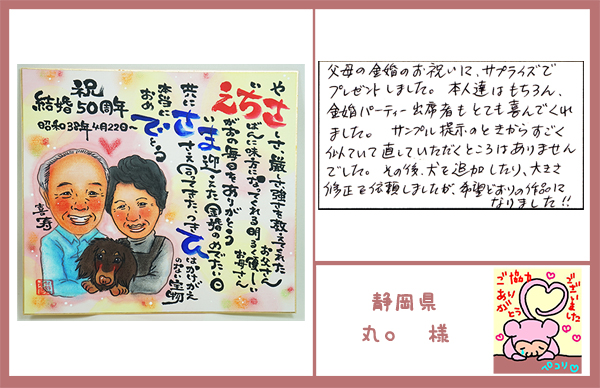 祝
結婚50周年
昭和38年4月22日〜
やさしさ厳しさ強さを教えてくれた
お父さん
いちばんに味方になってくれる明るく優しい
お母さん
えがおの毎日をありがとう
いま迎えた金婚のめでたい日
共にささえ合ってきたつきひは
かけがえ
のない宝物
本当に
おめでとう
喜寿
父母の金婚のお祝いに、サプライズで
プレゼントしました。本人達はもちろん、
金婚パーティー出席者もとても喜んでくれ
ました。サンプル提示のときからすごく
似ていて直していただくところはありません
でした。その後、犬を追加したり、大きさ
修正を依頼しましたが、希望どおりの作品に
なりました!!
静岡県
丸○ 様
ご協力
ありがとう
ございました
ペコリ